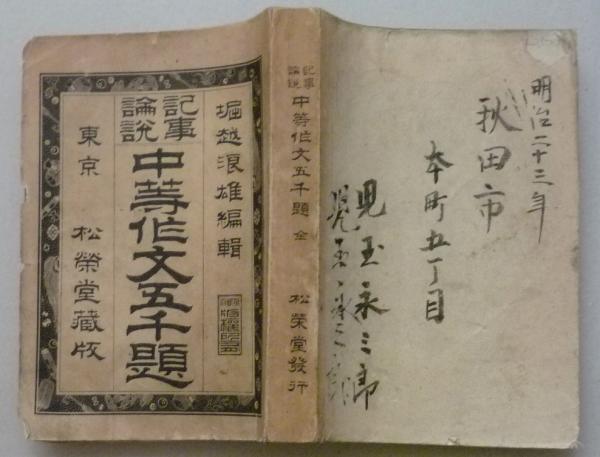 堀越浪雄編輯
記事
論説
中等作文五千題
東京 松榮堂藏版
記事
論説
中等作文五千題 全 松榮堂發行
明治二十三年
秋田市
本町五丁目
児玉永三郎